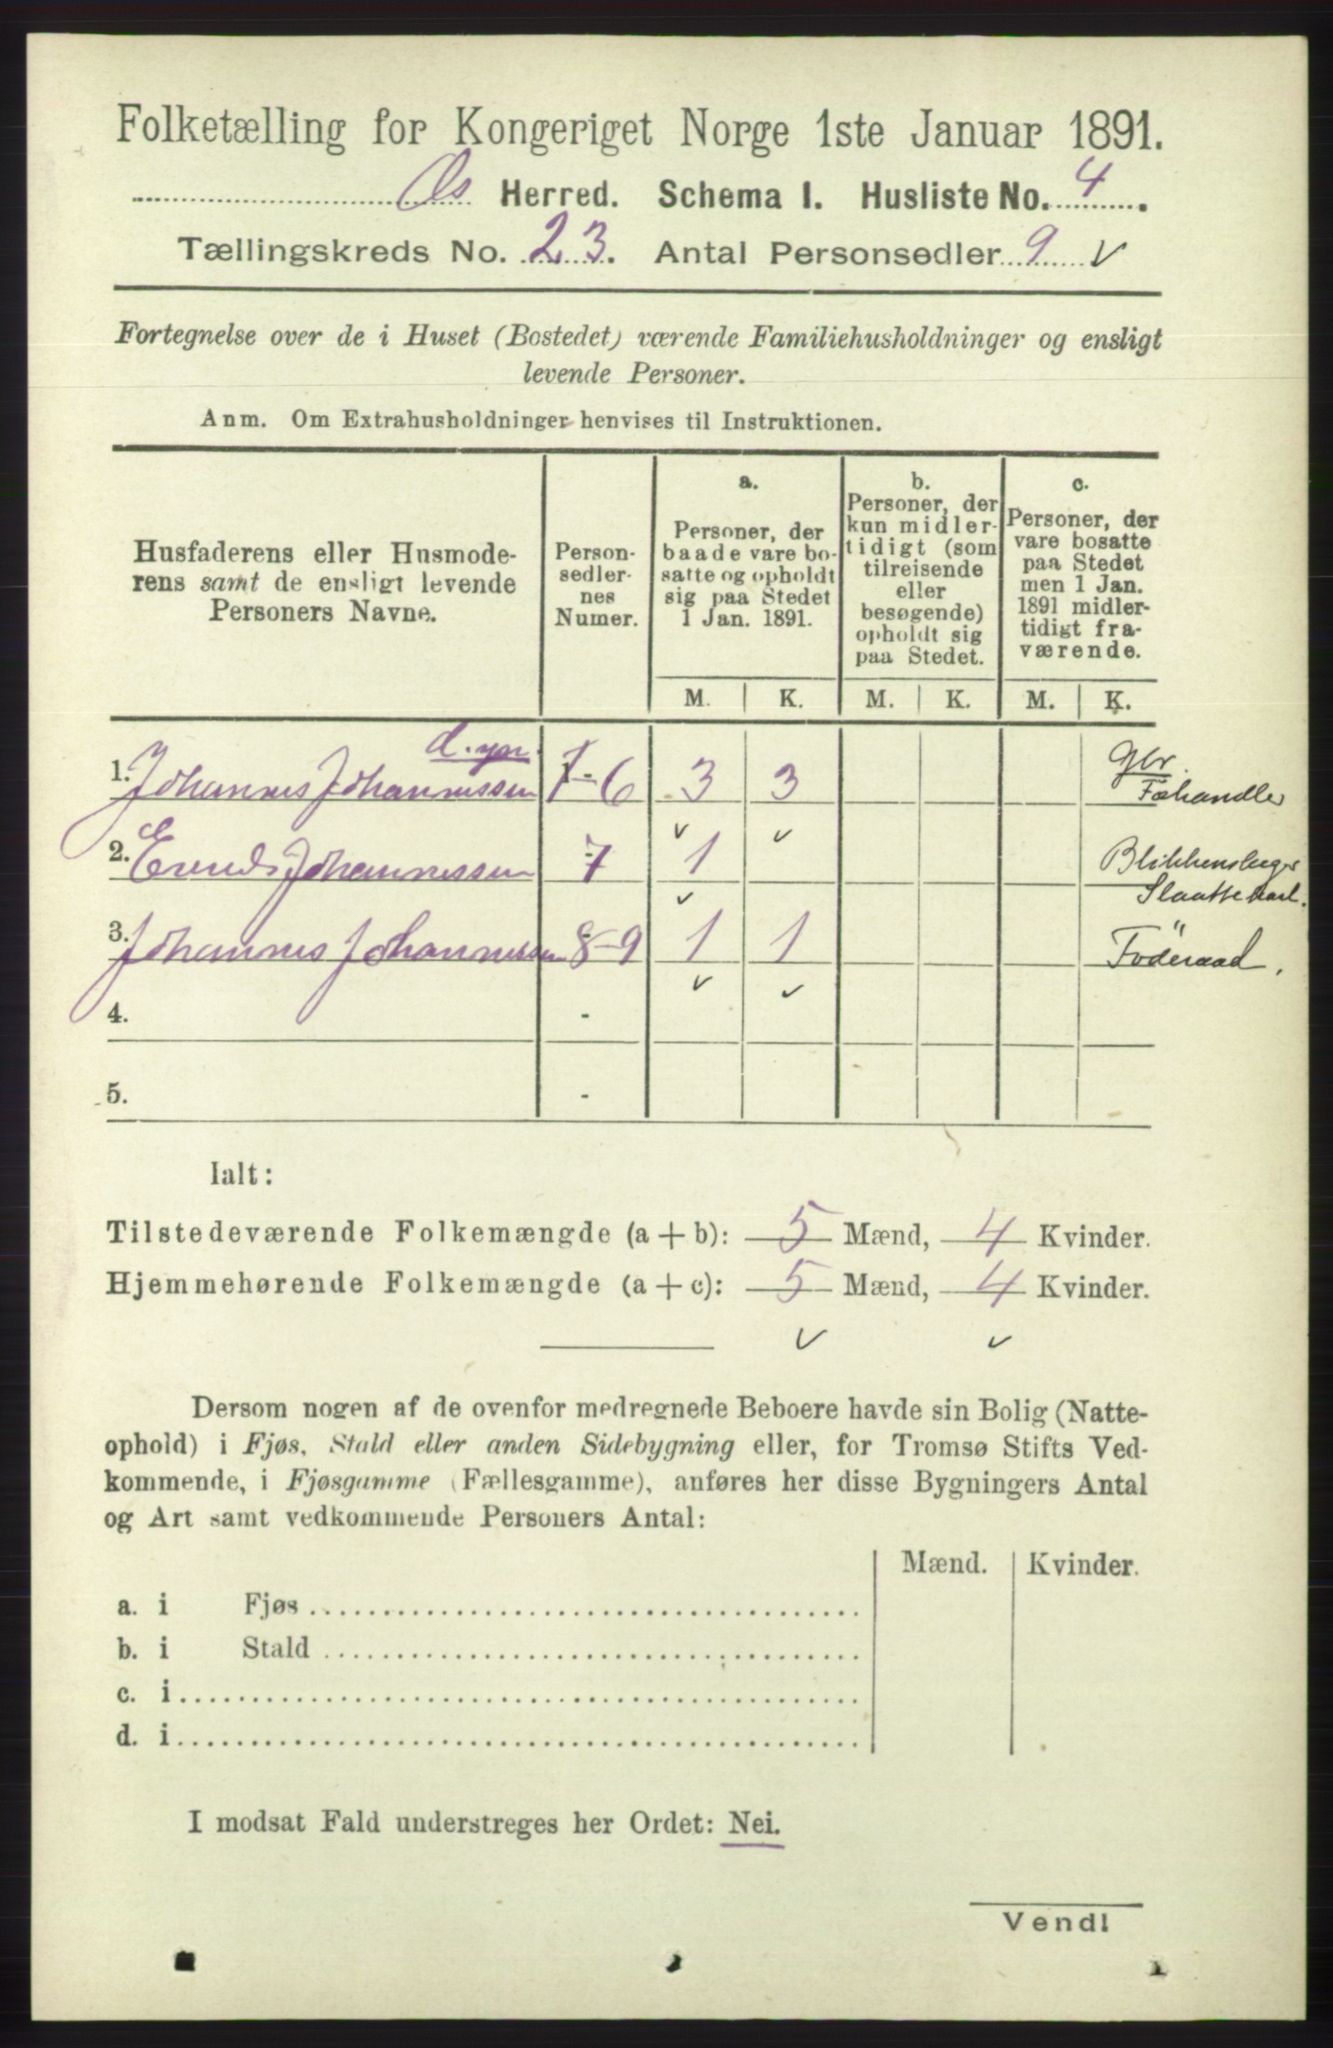 Folketælling for Kongeriget Norge 1ste Januar 1891.
Os Herred. Schema 1. Husliste No. 4.
Tællingskreds No. 23. Antal Personsedler 9 v
Fortegnelse over de i Huset (Bostedet) værende Familiehusholdninger og ensligt
levende Personer.
Anm. Om Extrahusholdninger henvises til Instruktionen.
Husfaderens eller Husmode-
rens samt de ensligt levende
Personers Navne.
Person-
sedler-
nes
Numer.
a.
Personer, der
baade vare bo-
satte og opholdt
sig paa Stedet
1 Jan. 1891.
b.
Personer, der
kun midler-
tidigt (som
tilreisende
eller
besøgende)
opholdt sig
paa Stedet.
c.
Personer, der
vare bosatte
paa Stedet
men 1 Jan.
1891 midler-
tidigt fra-
værende.
M. K. M. K. M. K.
d. yn.
1. Johannes Johannessen 1-6 3 3 Gbr.
Fæhandler
2. Johannessen 7 1 Blikkenslager
Slaattekarl.
3. Johannes Johannessen 8-9 1 1 Föderaad.
4. -
5. -
Ialt:
Tilstedeværende Folkemængde (a + b): 5 Mænd, 4 Kvinder.
Hjemmehørende Folkemængde (a + c): 5 Mænd, 4 Kvinder.
v v
Dersom nogen af de ovenfor medregnede Beboere havde sin Bolig (Natte-
ophold) i Fjøs, Stald eller anden Sidebygning eller, for Tromsø Stifts Ved-
kommende, i Fjøsgamme (Fællesgamme), anføres her disse Bygningers Antal
og Art samt vedkommende Personers Antal:
Mænd. Kvinder.
a. i Fjøs
b. i Stald
c. i
d. i
I modsat Fald understreges her Ordet: Nei.
Vendl